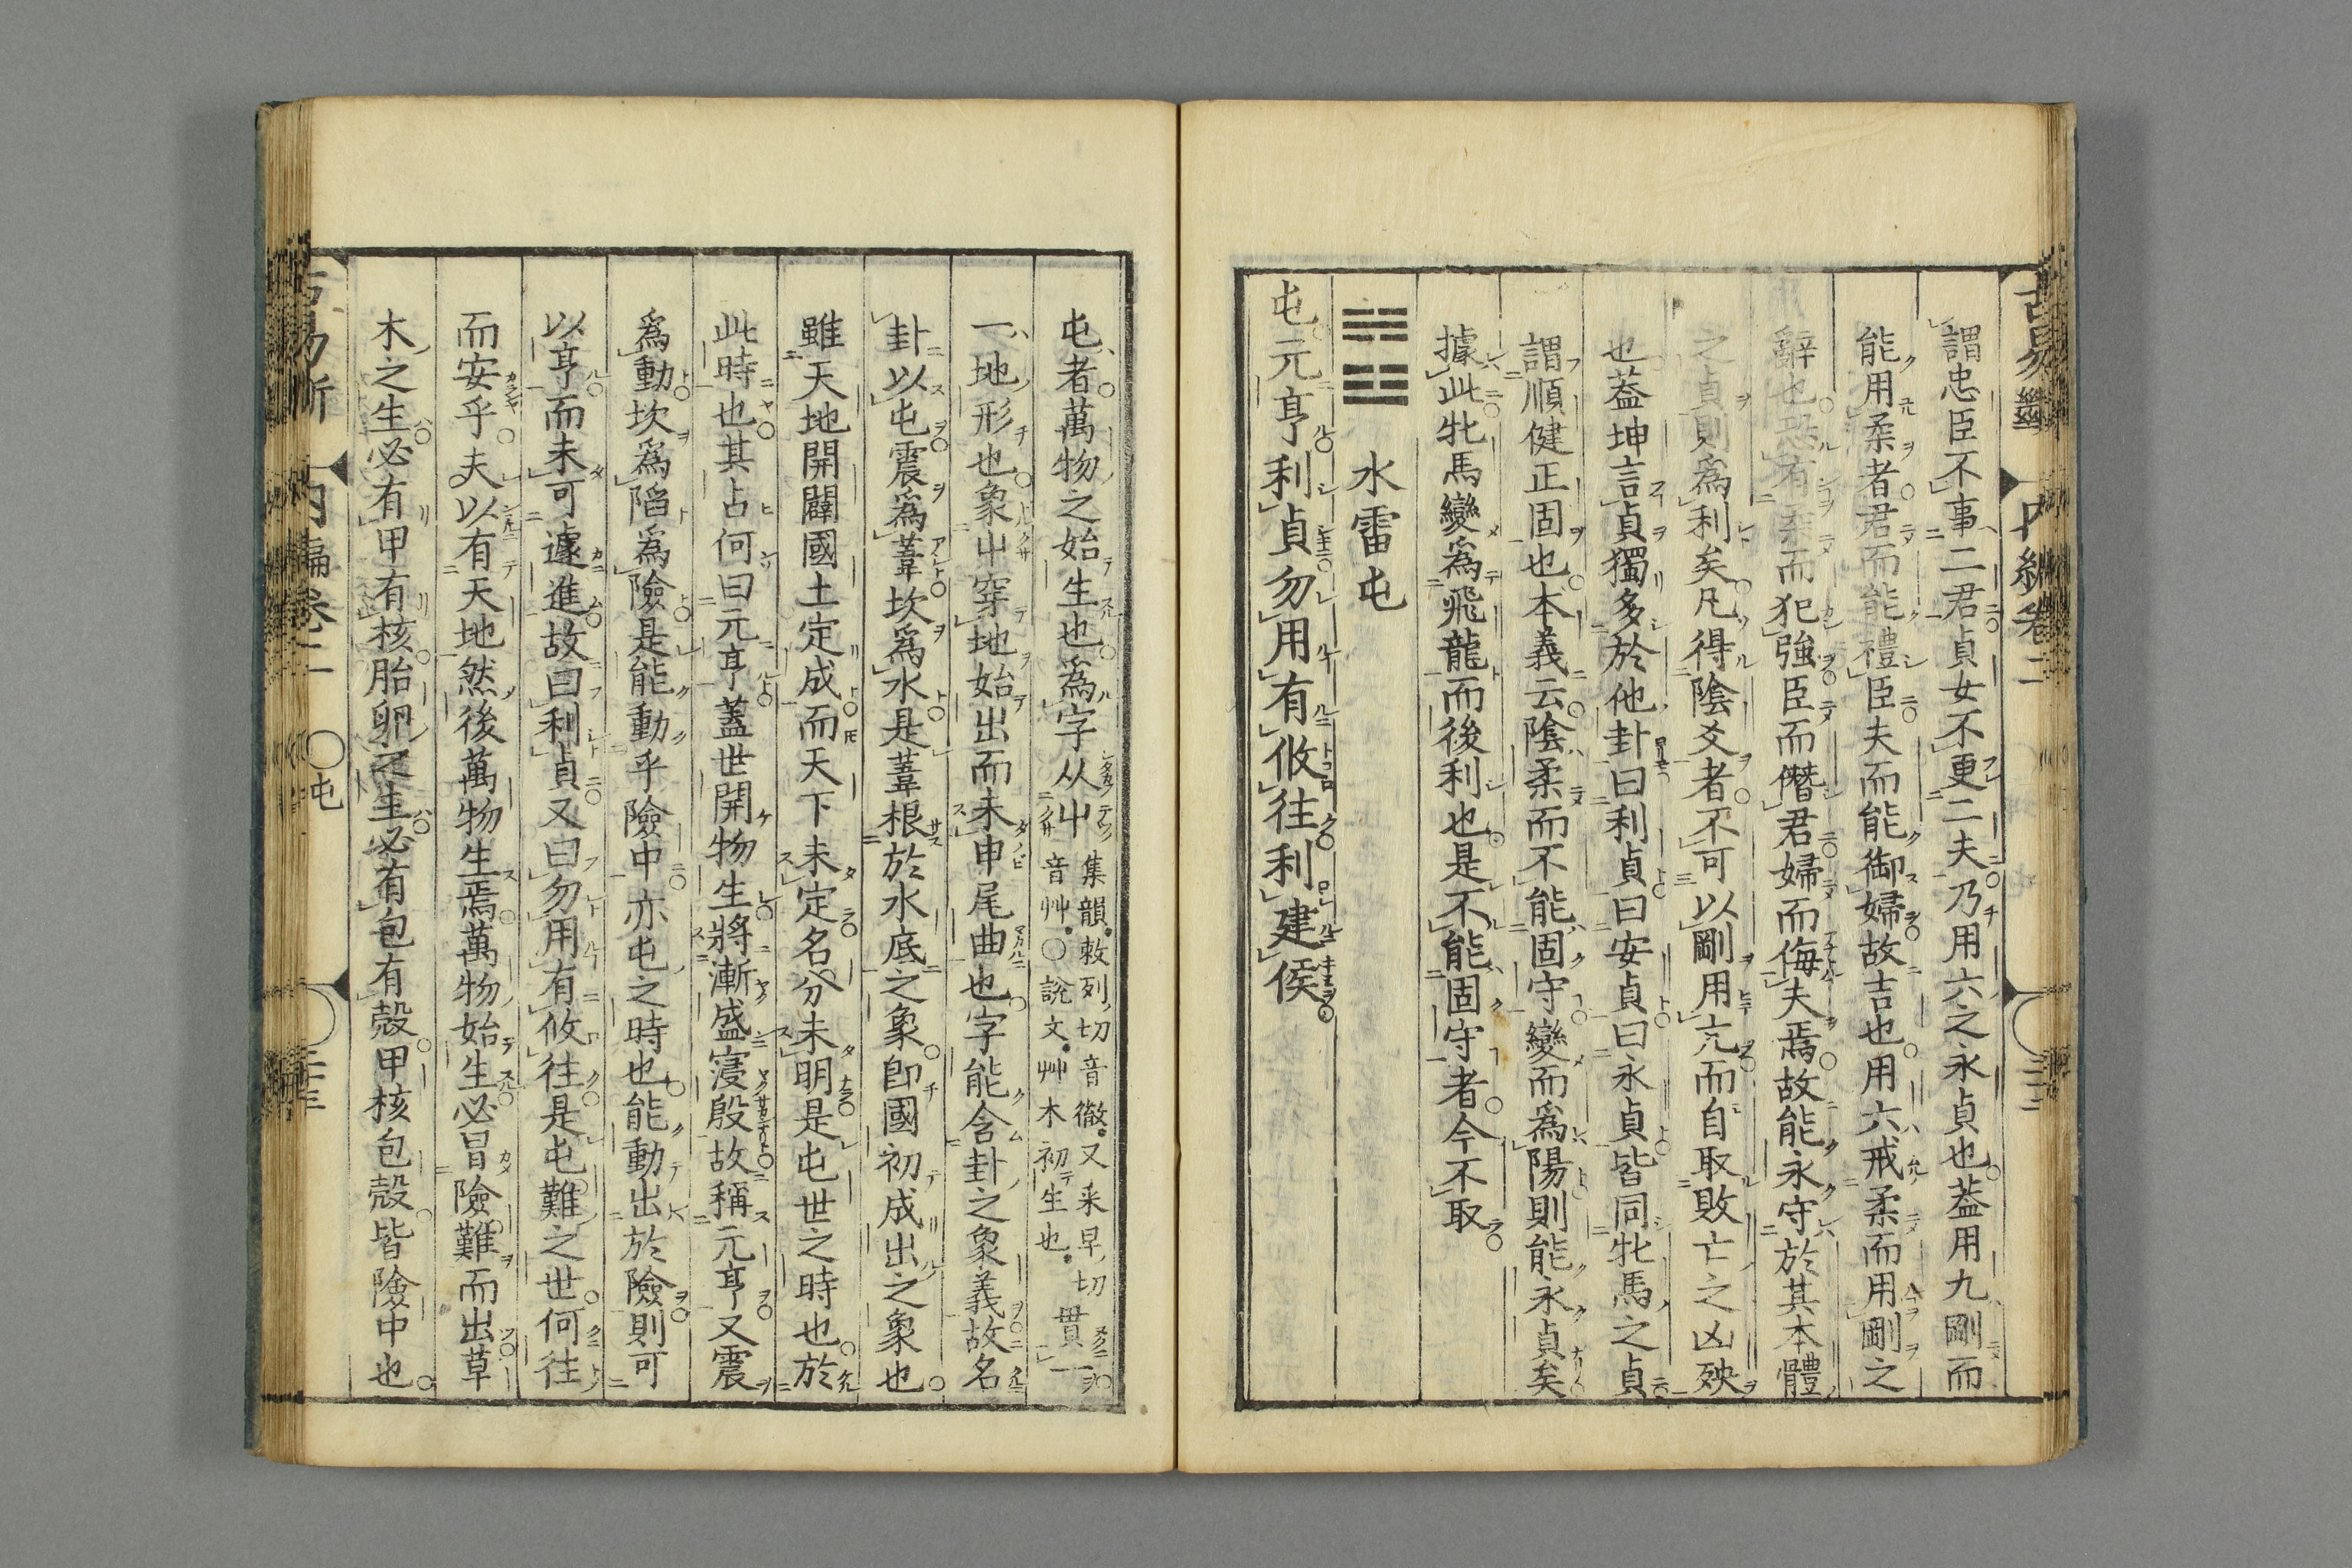 謂忠臣不事二君貞女不更二夫乃用六之永貞也蓋用九剛而
能用柔者君而能禮臣夫而能御婦故吉也用六戒柔而用剛之
辭也恐有柔而犯強臣而僭君婦而侮夫焉故能永守於其本體
之貞則爲利矣凡得陰爻者不可以剛用亢而自取敗亡之凶殃
也蓋坤言貞獨多於他卦曰利貞曰安貞曰永貞皆同牝馬之貞
謂順健正固也本義云陰柔而不能固守變而爲陽則能永貞矣
據此牝馬變爲飛龍而後利也是不能固守者今不取
水雷屯
屯元亨利貞勿用有攸往利建侯
屯者萬物之始生也爲字从屮集韻敕列切音徹又采早切音艸○說文艸木初生也貫一
一地形也象屮穿地始出而未申尾曲也字能含卦之象義故名
卦以屯震爲葦坎爲水是葦根於水底之象即國初成出之象也
雖天地開闢國土定成而天下未定名分未明是屯世之時也於
此時也其占何曰元亨蓋世開物生將漸盛寖殷故稱元亨又震
爲動坎爲陷爲險是能動乎險中亦屯之時也能動出於險則可
以亨而未可遽進故曰利貞又曰勿用有攸往是屯難之世何往
而安乎夫以有天地然後萬物生焉萬物始生必冒險難而出草
木之生必有甲有核胎卵之生必有包有殼甲核包殼皆險中也
內編卷二 ○屯